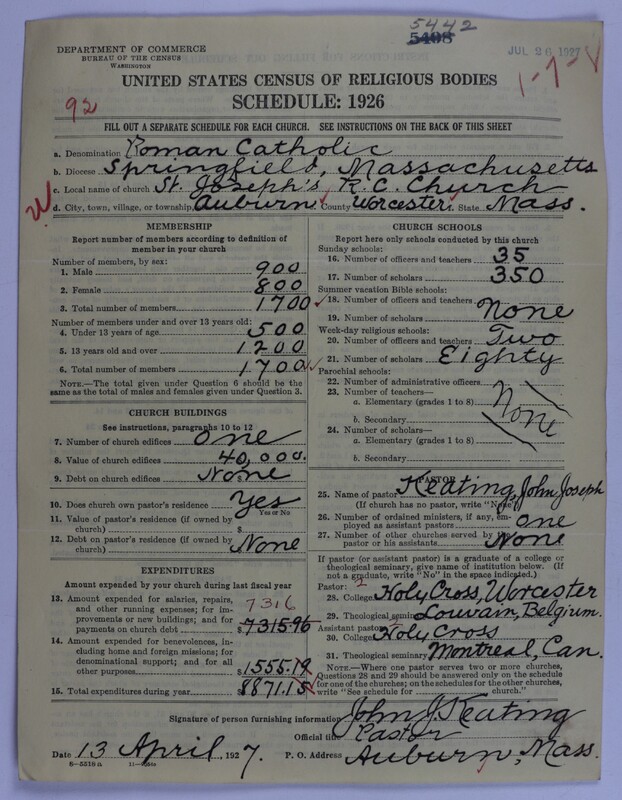 5442
5498
DEPARTMENT OF COMMERCE
BUREAU OF THE CENSUS
WASHINGTON
JUL 26 1927
92
UNITED STATES CENSUS OF RELIGIOUS BODIES
SCHEDULE: 1926
FILL OUT A SEPARATE SCHEDULE FOR EACH CHURCH. SEE INSTRUCTIONS ON THE BACK OF THIS SHEET
a. Denomination Roman Catholic
b. Diocese Springfield, Massachusetts
c. Local name of church St. Joseph's R.C. Church
d. City, town, village, or township, Auburn. County Worcester, State Mass.
MEMBERSHIP
Report number of members according to definition of
member in your church
Number of members, by sex:
1. Male 900
2. Female 800
3. Total number of members 1700
Number of members under and over 13 years old:
4. Under 13 years of age 500
5. 13 years old and over 1200
6. Total number of members 1700
NOTE.—The total given under Question 6 should be the
same as the total of males and females given under Question 3.
CHURCH BUILDINGS
See instructions, paragraphs 10 to 12
7. Number of church edifices One
8. Value of church edifices $40,000.
9. Debt on church edifices $ None
10. Does church own pastor's residence Yes
Yes or No
11. Value of pastor's residence (if owned by
church) $
12. Debt on pastor's residence (if owned by
church) None
EXPENDITURES
Amount expended by your church during last fiscal year
13. Amount expended for salaries, repairs,
and other running expenses; for im-
provements or new buildings; and for
payments on church debt $7315.96
7316
14. Amount expended for benevolences,
including home and foreign missions; for
denominational support; and for all
other purposes $1555.19
15. Total expenditures during year $8871.15
CHURCH SCHOOLS
Report here only schools conducted by this church
Sunday schools:
16. Number of officers and teachers 35
17. Number of scholars 350
Summer vacation Bible schools:
18. Number of officers and teachers
19. Number of scholars None
Week-day religious schools:
20. Number of officers and teachers Two
21. Number of scholars Eighty
Parochial schools:
22. Number of administrative officers
23. Number of teachers—
a. Elementary (grades 1 to 8)
b. Secondary
None
24. Number of scholars—
a. Elementary (grades 1 to 8)
b. Secondary
PASTOR
25. Name of pastor Keating, John Joseph
(If church has no pastor, write "No")
26. Number of ordained ministers, if any, em-
ployed as assistant pastors One
27. Number of other churches served by the
pastor or his assistants None
If pastor (or assistant pastor) is a graduate of a college or
theological seminary, give name of institution below. (If
not a graduate, write "No" in the space indicated.)
Pastor:
28. College Holy Cross, Worcester
29. Theological seminary Louvain, Belgium.
Assistant pastor:
30. College Holy Cross
31. Theological seminary Montreal, Can.
NOTE.—Where one pastor serves two or more churches,
Questions 28 and 29 should be answered only on the schedule
for one of the churches; on the schedules for the other churches,
write "See schedule for church."
Signature of person furnishing information John J. Keating
Official title Pastor
Date 13 April, 1927. P. O. Address Auburn, Mass.
8—5518a